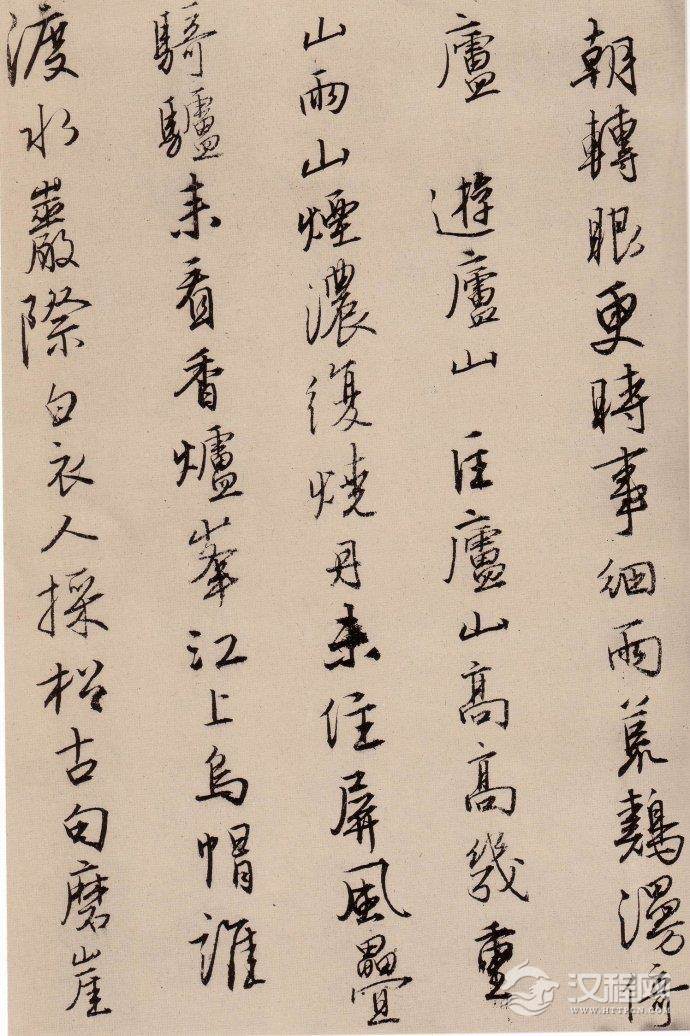 朝轉眼更時事細雨荒鷄漫倚
廬 遊廬山 匡廬山高高幾重
山雨山煙濃復燒丹未住屏風疊
騎驢來看香爐峯江上烏帽誰
渡水巖際白衣人採柗古句磨崖
汉程网
WWW.HTTPCN.COM